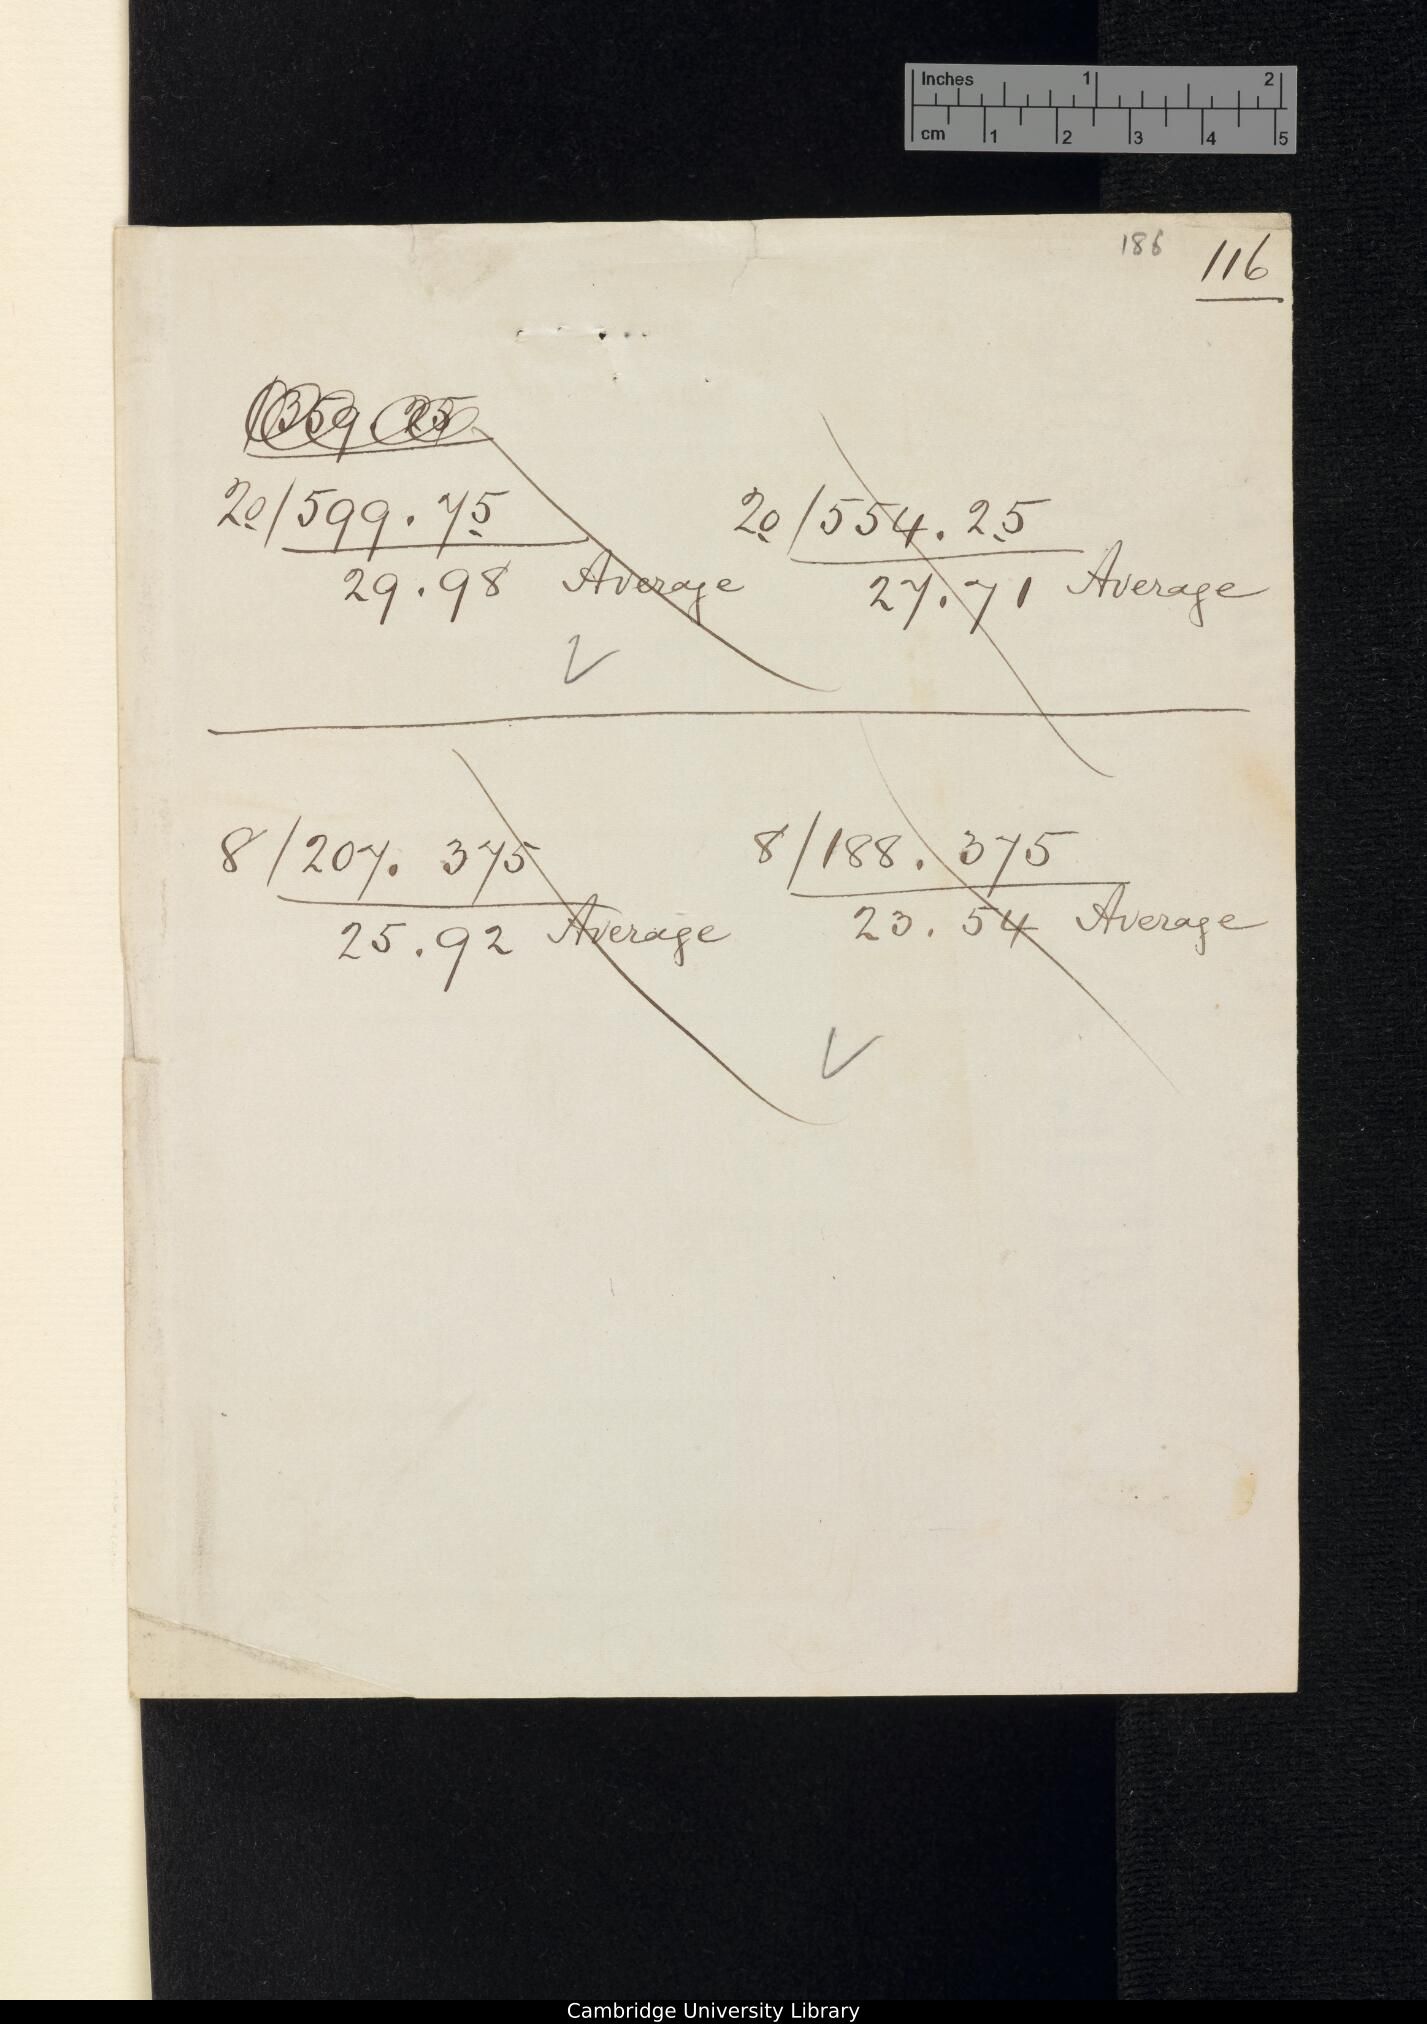 Inches 1 2
cm 1 2 3 4 5
186 116
1359 25
20/599.75
29.98 Average
20/554.25
27.71 Average
8/207.375
25.92 Average
8/188.375
23.54 Average
Cambridge University Library